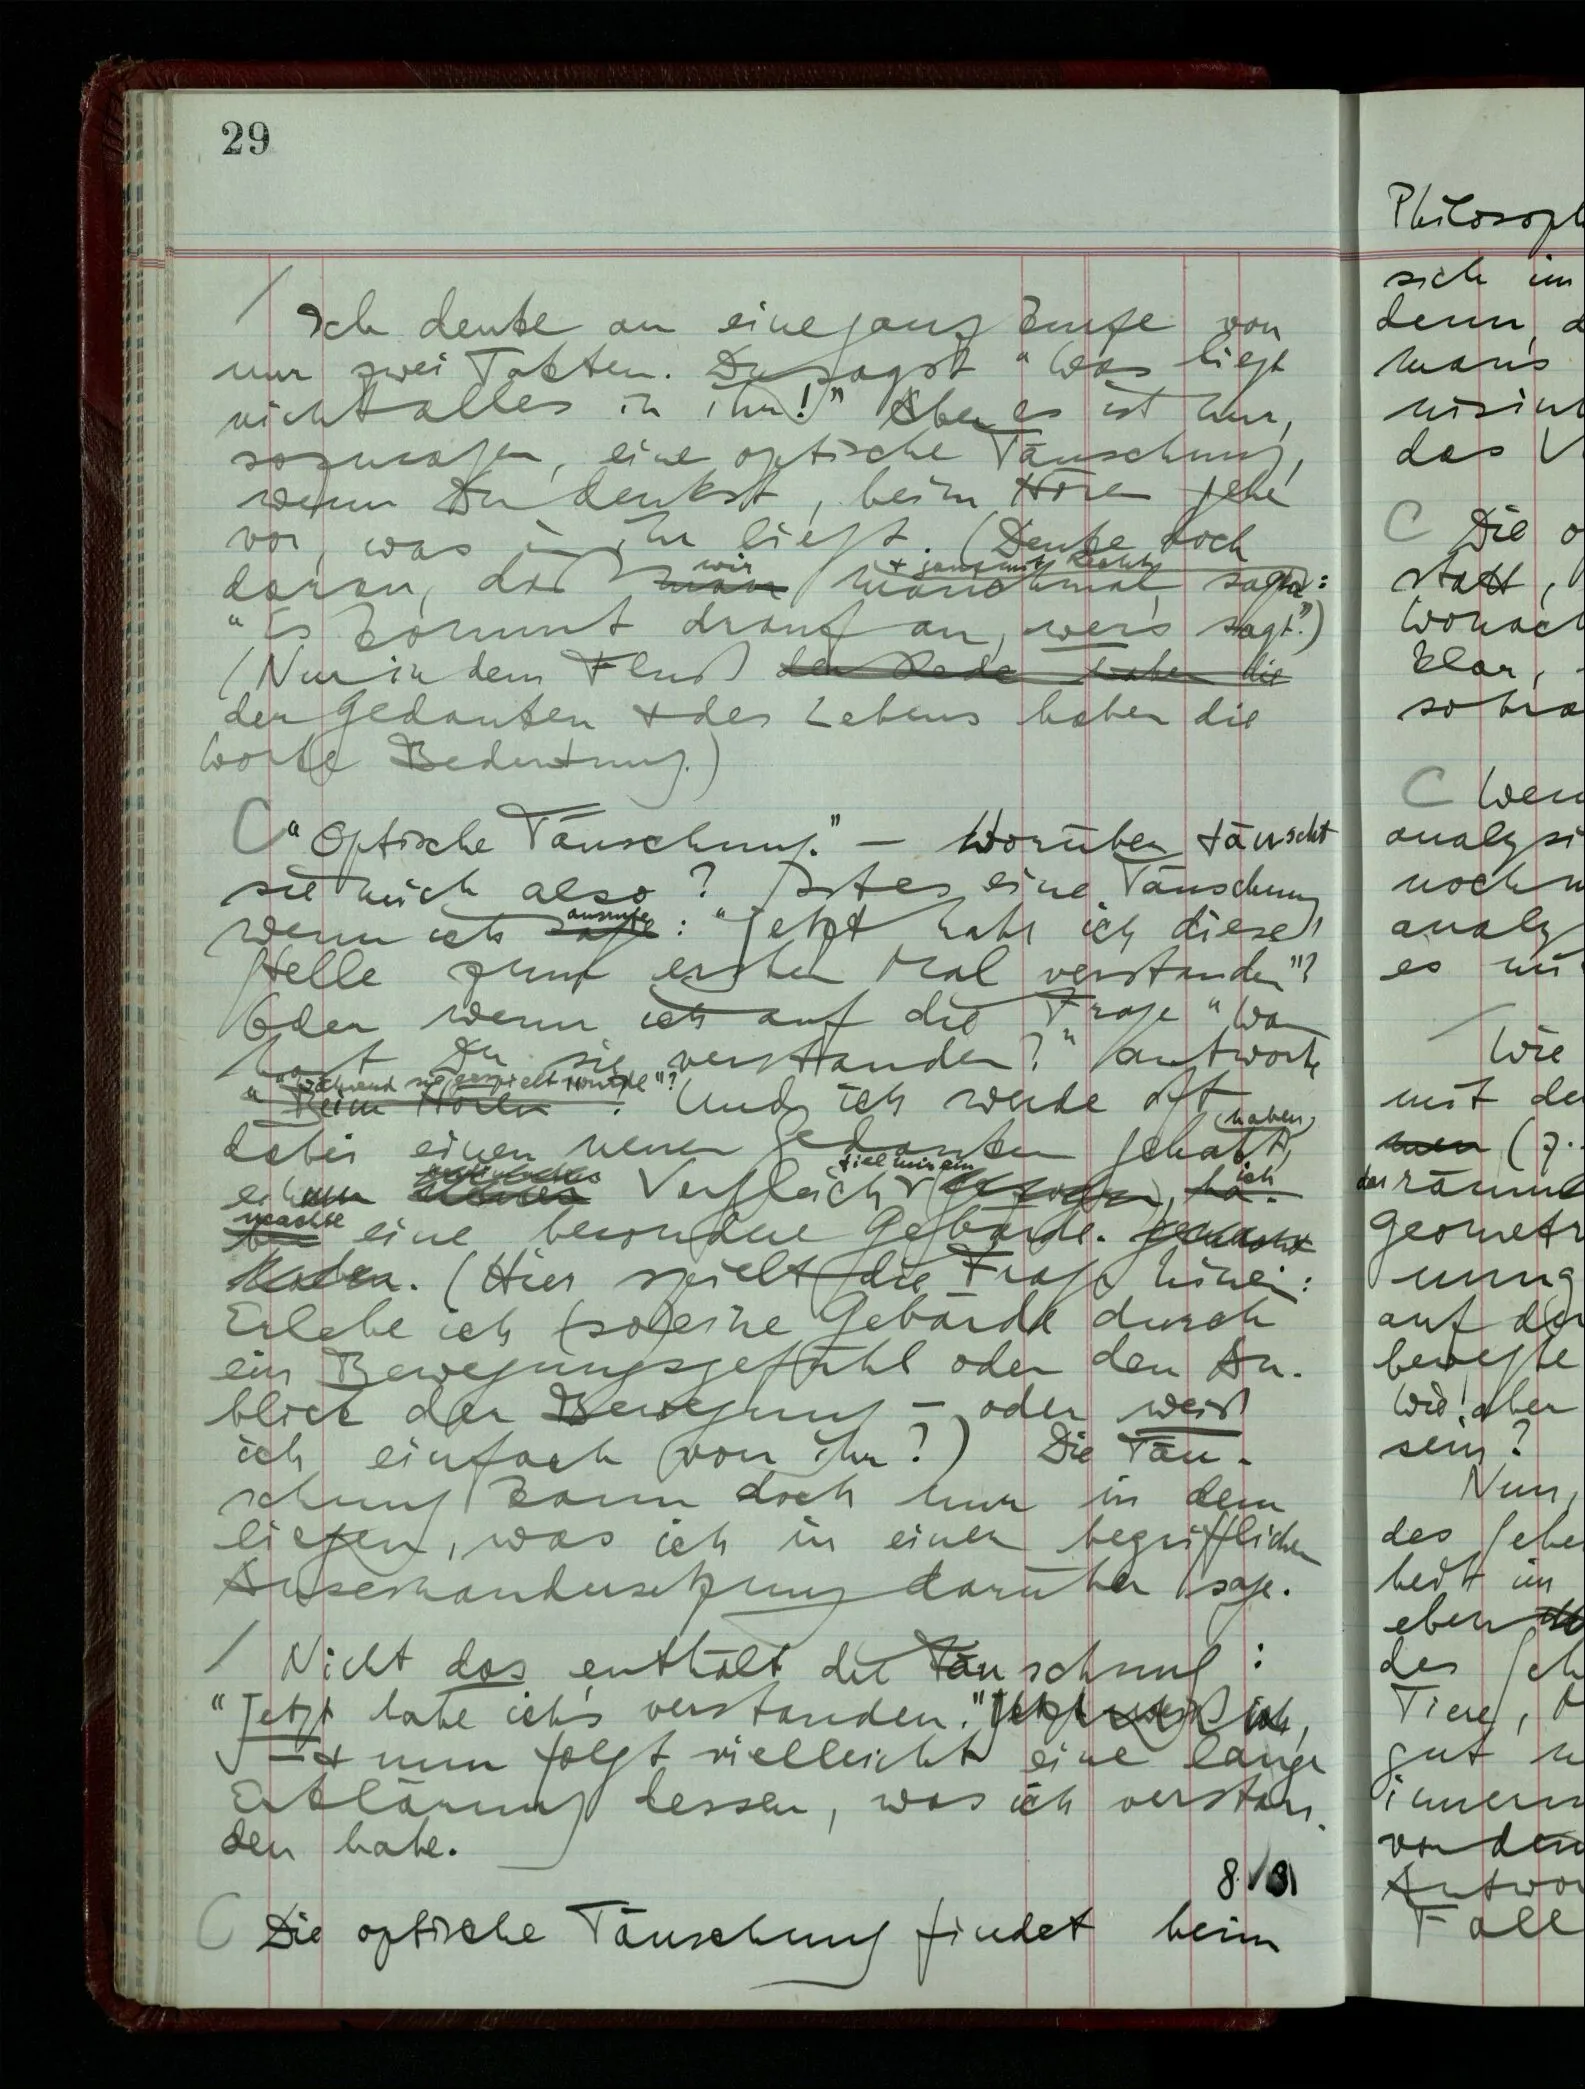 29
/ Ich denke an eine ganz kurze von
nur zwei Takten. Du sagst “Was liegt
nicht alles in ihr!” Aber es ist nur,
sozusagen, eine optische Täuschung,
wenn Du denkst, beim Hören gehe
vor, was in ihr liegt. (Denke doch
wir + ganz mit Recht
daran, daß man manchmal sagen:
“Es kommt drauf an, wer's sagt.”)
(Nur in dem Fluß der Rede haben die
der Gedanken + des Lebens haben die
Worte Bedeutung.)
C “Optische Täuschung.” – Worüber täuscht
sie mich also? Ist es eine Täuschung
ausrufe
wenn ich sage: “Jetzt habe ich diese
Stelle zum ersten Mal verstanden”?
Oder wenn ich auf die Frage “Wann
hast Du sie verstanden?” antworte
“während sie gespielt wurde”?
“Beim Hören”? Und ich werde oft
haben
dabei einen neuen Gedanken gehabt,
fiel mir ein ich
ein Vergleich gezogen, ha-
machte
ben eine besondere Gebärde. gemacht
haben. (Hier spielt die Frage hinein:
Erlebe ich (so) eine Gebärde durch
ein Bewegungsgefühl oder den An-
blick der Bewegung – oder weiß
ich einfach von ihr?) Die Täu-
schung kann doch nur in dem
liegen, was ich in einer begrifflichen
Auseinandersetzung darüber sage.
/ Nicht das enthält die Täuschung:
“Jetzt habe ich's verstanden.” Jetzt weiß ich,
– + nun folgt vielleicht eine lange
Erklärung dessen, was ich verstan-
den habe.
C Die optische Täuschung findet beim
Philosoph
sich im
denn, d
das V
C Die o
statt,
Wonach
klar,
C Wen
analysi
noch
analy
es
/ Wie
mit de
men (z.
Geometr
auf de
bewegte
wie! aber
sein?
Nun,
des
eben
des
Tiere,
gut
innern
von den
Antwor
Fall